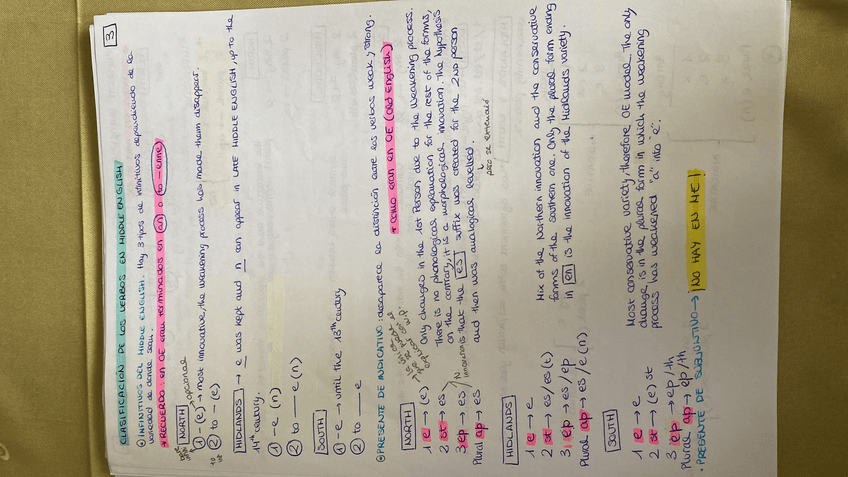 3
CLASIFICACIÓN DE LOS VERBOS EN MIDDLE ENGLISH
INFINITIVOS DEL MIDDLE ENGLISH. Hay 3 tipos de infinitivos dependiendo de la
variedad de donde sean.
* RECUERDO: en OE eran terminados en (an) o (to -enne)
NORTH
opcional
① -(e) → most innovative, the weakening process has made them disappear.
② to -(e)
MIDLANDS → e was kept and n can appear in LATE MIDDLE ENGLISH, up to the
14th century.
① -e (n)
② to __ e (n)
SOUTH
① -e → until the 13th century
② to __ e
PRESENTE DE INDICATIVO: desaparece la distinción entre los verbos weak y strong.
* COMO ERAN EN OE (old English)
NORTH
1 e → (e) Only changes in the 1st Person due to the weakening process.
2 st → es There is no phonological explanation for the rest of the forms,
on the contrary, it is a morphological innovation. The hypothesis
3 ep → es innovation is that the es suffix was created for the 2ND person
Plural ap → es and then was analogical levelled.
↓ pero se extendió
MIDLANDS
1 e → e Mix of the Northern innovation and the conservative
2 st → es/es(t) forms of the southern one. Only the plural form ending
3 ep → es/ep in en is the innovation of the Midlands variety.
Plural ap → es/e(n)
SOUTH
1 e → e Most conservative variety, therefore, OE model. The only
2 st → (e)st change is in the plural form in which the weakening
3 ep → ep/th process has weakened "a" into "e".
Plural ap → ep/th
· PRESENTE DE SUBJUNTIVO → ¡NO HAY EN ME!